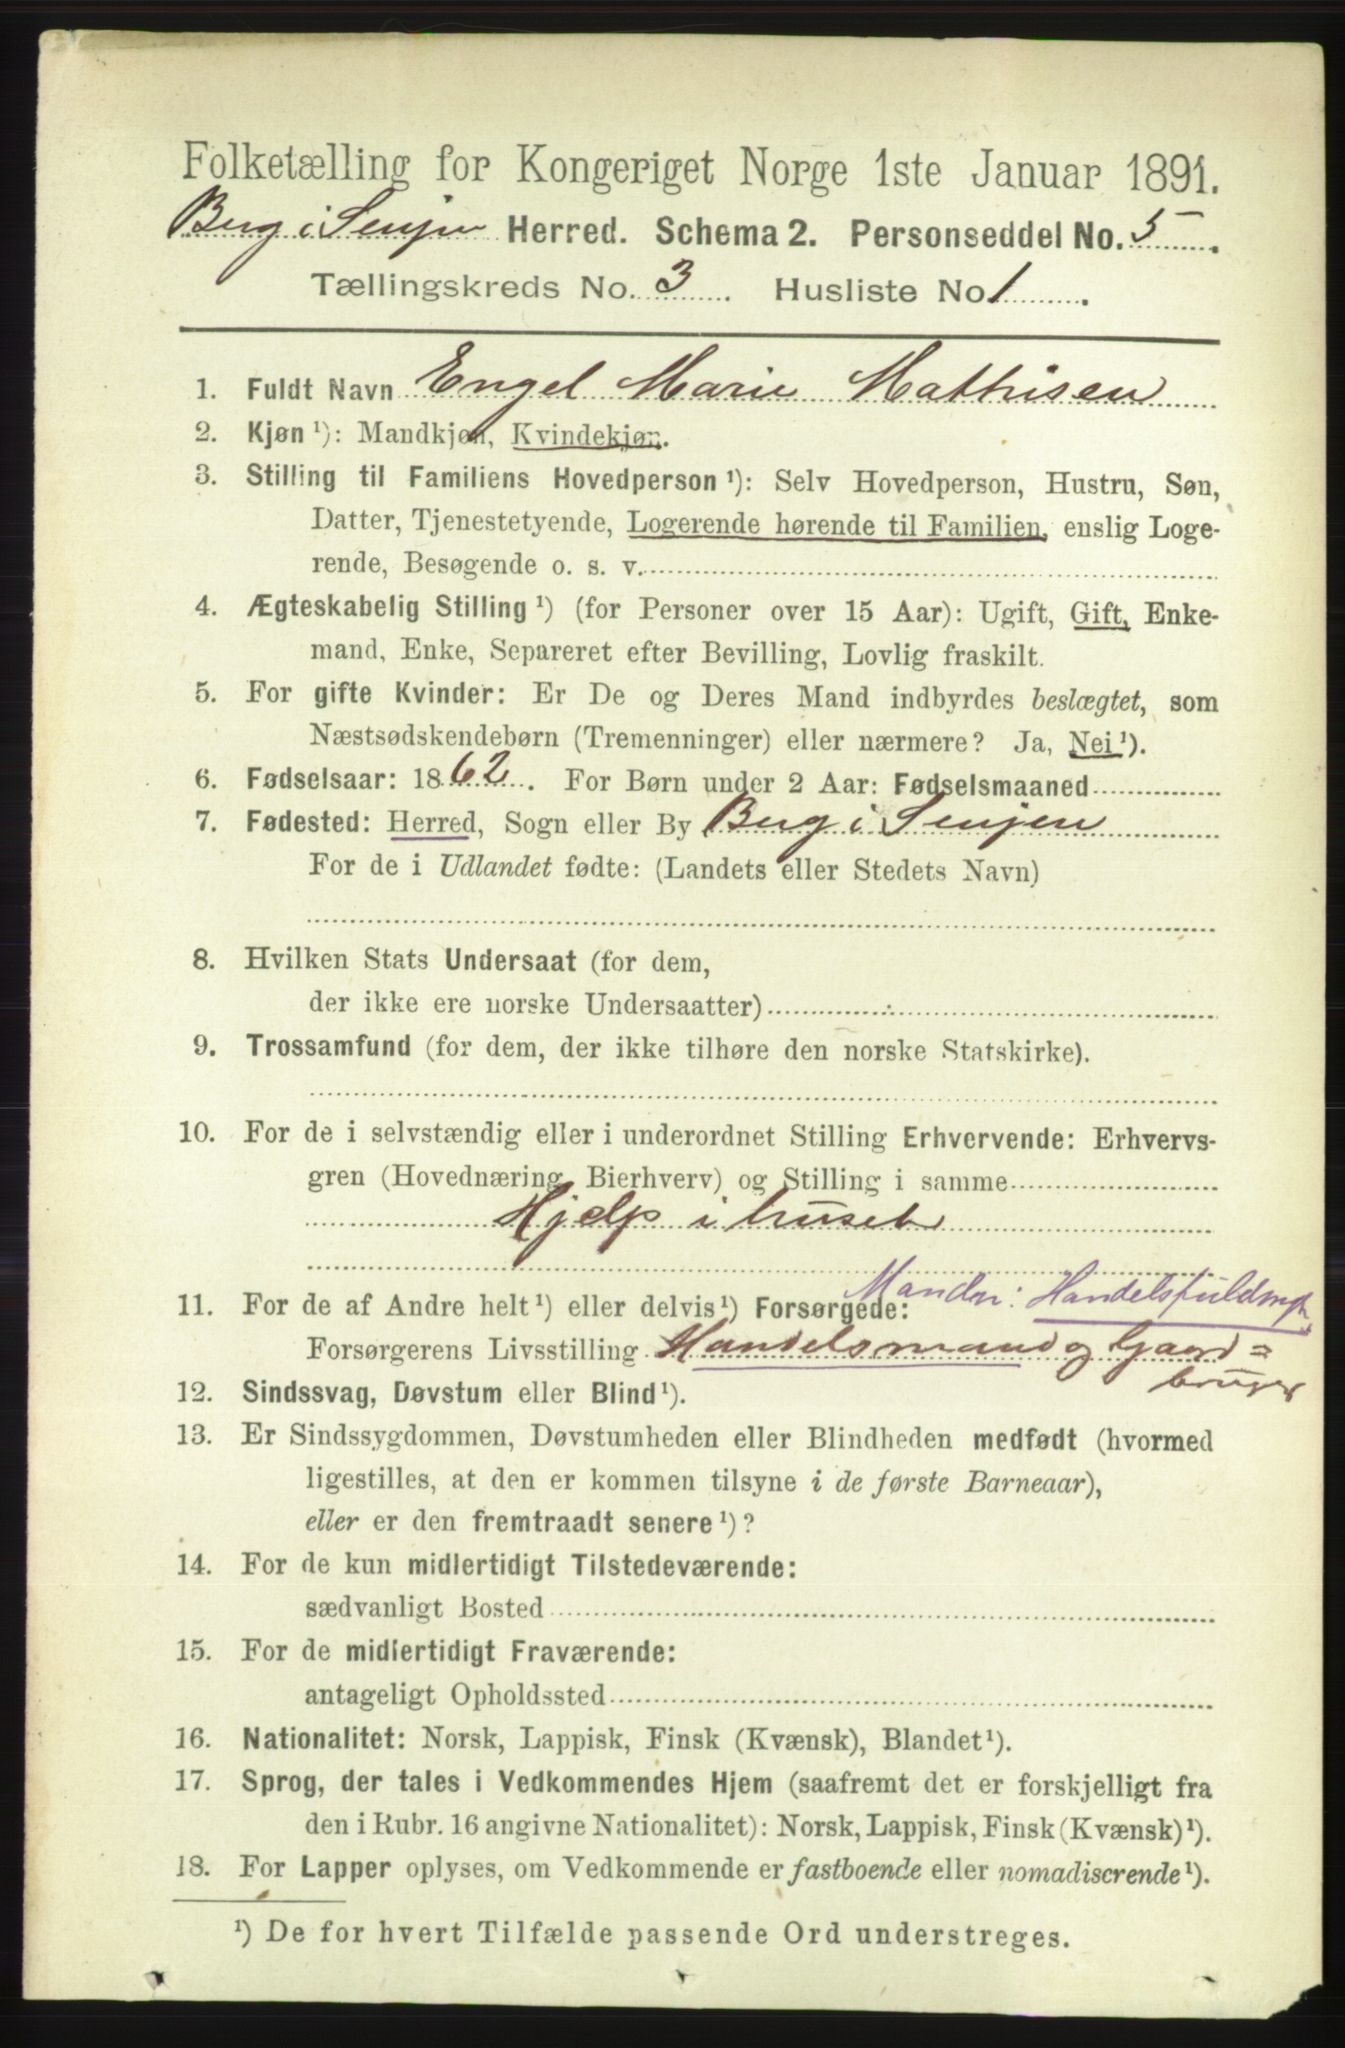 Folketælling for Kongeriget Norge 1ste Januar 1891.
Berg i Senjen Herred. Schema 2. Personseddel No. 5.
Tællingskreds No. 3. Husliste No 1.
1. Fuldt Navn Engel Marie Mathisen
2. Kjøn ¹): Mandkjøn, Kvindekjøn.
3. Stilling til Familiens Hovedperson ¹): Selv Hovedperson, Hustru, Søn,
Datter, Tjenestetyende, Logerende hørende til Familien, enslig Loge-
rende, Besøgende o. s. v.
4. Ægteskabelig Stilling ¹) (for Personer over 15 Aar): Ugift, Gift, Enke-
mand, Enke, Separeret efter Bevilling, Lovlig fraskilt.
5. For gifte Kvinder: Er De og Deres Mand indbyrdes beslægtet, som
Næstsødskendebørn (Tremenninger) eller nærmere? Ja, Nei ¹).
6. Fødselsaar: 1862. For Børn under 2 Aar: Fødselsmaaned
7. Fødested: Herred, Sogn eller By Berg i Senjen
For de i Udlandet fødte: (Landets eller Stedets Navn)
8. Hvilken Stats Undersaat (for dem,
der ikke ere norske Undersaatter)
9. Trossamfund (for dem, der ikke tilhøre den norske Statskirke).
10. For de i selvstændig eller i underordnet Stilling Erhvervende: Erhvervs-
gren (Hovednæring, Bierhverv) og Stilling i samme
Hjelp i huset
Manden: Handelsfuldmgt.
11. For de af Andre helt ¹) eller delvis ¹) Forsørgede:
Forsørgerens Livsstilling Handelsmand og Gaard=
bruger
12. Sindssvag, Døvstum eller Blind ¹).
13. Er Sindssygdommen, Døvstumheden eller Blindheden medfødt (hvormed
ligestilles, at den er kommen tilsyne i de første Barneaar),
eller er den fremtraadt senere ¹)?
14. For de kun midlertidigt Tilstedeværende:
sædvanligt Bosted
15. For de midlertidigt Fraværende:
antageligt Opholdssted
16. Nationalitet: Norsk, Lappisk, Finsk (Kvænsk), Blandet ¹).
17. Sprog, der tales i Vedkommendes Hjem (saafremt det er forskjelligt fra
den i Rubr. 16 angivne Nationalitet): Norsk, Lappisk, Finsk (Kvænsk) ¹).
18. For Lapper oplyses, om Vedkommende er fastboende eller nomadiserende ¹).
¹) De for hvert Tilfælde passende Ord understreges.